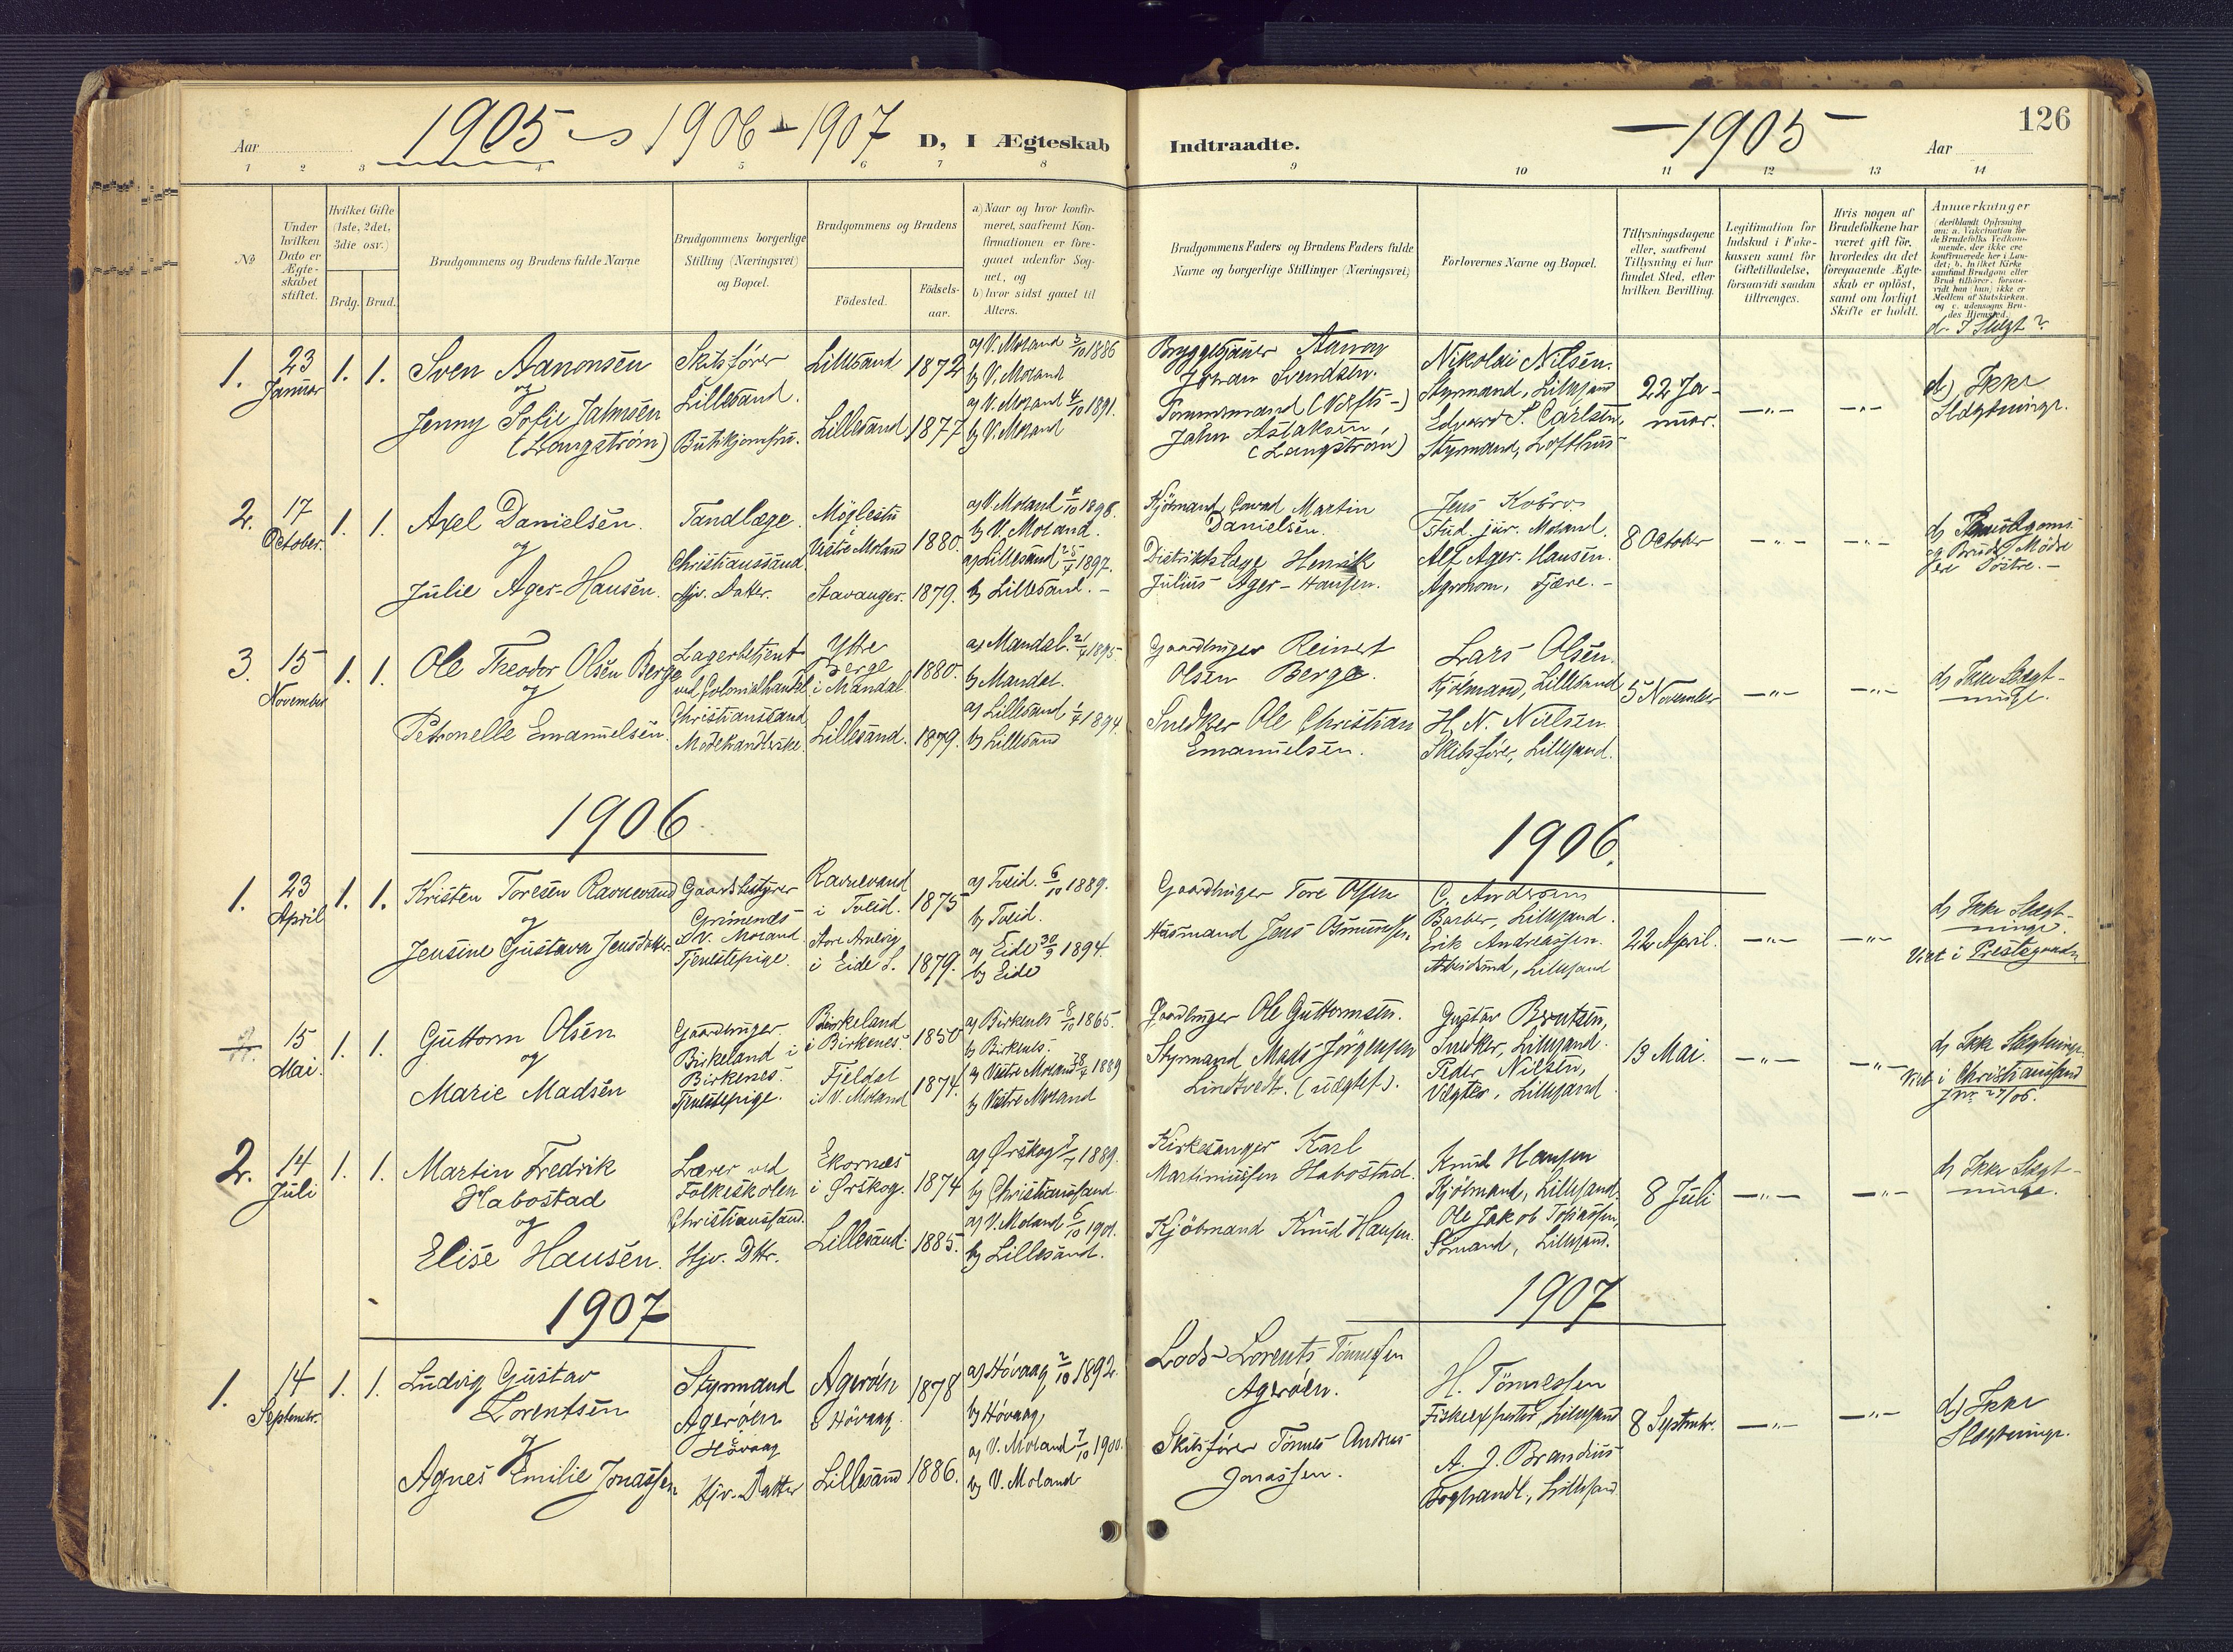 1905 1906 - 1907
D, I Ægteskab
Indtraadte.
1905
126
Aar
Aar
1 2 3 4 5 6 7 8
9 10 11 12 13 14
No
Under hvilken Dato er Ægteskabet stiftet.
Hvilket Gifte (1ste, 2det, 3die osv.)
Brdg. Brud.
Brudgommens og Brudens fulde Navne
Brudgommens borgerlige Stilling (Næringsvei) og Bopæl.
Brudgommens og Brudens
Födested.
Födsels-aar.
a) Naar og hvor konfirmeret, saafremt Konfirmationen er foregaaet udenfor Sognet, og
b) hvor sidst gaaet til Alters.
Brudgommens Faders og Brudens Faders fulde Navne og borgerlige Stillinger (Næringsvei)
Forlovernes Navne og Bopæl.
Tillysningsdagene eller, saafremt Tillysning ei har fundet Sted, efter hvilken Bevilling.
Legitimation for Indskud i Enkekassen samt for Giftetilladelse, forsaavidt saadan tiltrænges.
Hvis nogen af Brudefolkene har været gift för, hvorledes da det foregaaende Ægteskab er oplöst, samt om lovligt Skifte er holdt.
Anmærkninger
d. I Slægt?
1.
23 Januar
1. 1.
Sven Aanonsen
og
Jenny Sofie Jahnsen
(Langström)
Skibsfører
Lillesand.
Lillesand 1872
Lillesand 1877
a) V. Moland 3/10 1886
b) V. Moland
a) V. Moland 4/10 1891.
b) V. Moland
Bryggesjauer Aanon
Johan Svendsen.
Tømmermand (Værfts-)
Jahn Aslaksen,
(Langström)
Nikolai Nilsen.
Styrmand, Lillesand
Edvard S. Carlsen,
Styrmand, Lofthus
22 Januar.
d) Ikke
Slægtninge.
2.
17 October.
1. 1.
Axel Danielsen.
og
Julie Ager-Hansen.
Tandlæge.
Christianssand.
Hjv. Datter.
Møglestu
Vestre Moland 1880.
Stavanger. 1879.
a) V. Moland 4/10 1896.
b) V. Moland.
a) Lillesand 25/4 1897.
b) Lillesand.
Kjöbmand Conrad Martin
Danielsen.
Distriktslæge Henrik
Julius Ager-Hansen.
Jens Kobro
stud. jur. Moland.
Alf Ager-Hansen.
Agronom, Fjære.
8 October
og Brudens Mödre
ere Söstre.
3.
15 November
1. 1.
Ole Theodor Olsen Berge
og
Petronelle Emanuelsen.
Lagerbetjent
ved Colonialhandel
Christianssand
Modehandlerske.
Yttre
Berge
i Mandal. 1880.
Lillesand. 1879.
a) Mandal. 21/4 1895
b) Mandal.
a) Lillesand 1/4 1894.
b) Lillesand
Gaardbruger Reinert
Olsen Berge.
Snedker Ole Christian
Emanuelsen.
Lars Olsen.
Kjöbmand, Lillesand
H. N. Nielsen
Skibsförer, Lillesand.
5 November
d) Ikke Slægt-
ninge.
1906.
1906.
1.
23 April
1. 1.
Kristen Toresen Ravnevand
og
Jensine Gustava Jensdatter
Gaardsbestyrer
Grimenes
V. Moland
Tjenestepige.
Ravnevand
i Tveid. 1875
i Eide S. 1879.
a) Tveid. 6/10 1889.
b) Tveid.
a) Eide 30/9 1894.
b) Eide
Gaardbruger Tore Olsen
Husmand Jens Osmundsen.
C. Andersen
Barber, Lillesand.
Eik Andreassen.
Arbeidsmd, Lillesand
22 April.
d) Ikke Slægt-
ninge.
Viet i Prestegaarden
15 Mai.
1. 1.
Guttorm Olsen
og
Marie Madsen
Gaardbruger.
Birkeland i
Birkenes.
Tjenestepige.
Birkeland
i Birkenes. 1850
Fjeldal
i V. Moland 1874.
a) Birkenes 8/10 1865.
b) Birkenes.
a) Vestre Moland 28/4 1889
b) Vestre Moland
Gaardbruger Ole Guttormsen.
Styrmand Mads Jörgensen
Lindtvedt. (uægtef.).
Gustav Berntsen,
Snedker, Lillesand.
Peder Nielsen,
Vægter, Lillesand
13 Mai.
d) Ikke Slægtninge.
Viet i Christianssand
2.
14 Juli
1. 1.
Martin Fredrik
Habostad
og
Elise Hansen.
Lærer ved
Folkeskolen
Christianssand.
Hjv. Dttr.
Ekornes
i Ørskog. 1874
Lillesand. 1885.
a) Ørskog 7/7 1889.
b) Christianssand
a) V. Moland 6/10 1901.
b) Lillesand.
Kirkesanger Karl
Martiniussen Habostad.
Kjöbmand Knud Hansen.
Knud Hansen
Kjöbmand, Lillesand.
Ole Jakob Tobiassen,
Sömand, Lillesand.
8 Juli
d) Ikke Slægt-
ninge.
1907
1907
1.
14 Septembr.
1. 1.
Ludvig Gustav
Lorentsen
og
Agnes Emilie Jonassen
Styrmand
Ageröen
Hövaag
Hjv. Datter
Ageröen
i Hövaag. 1878
Lillesand 1886.
a) Hövaag 2/10 1892.
b) Hövaag
a) V. Moland 7/10 1900.
b) V. Moland
Lods Lorents Tönnessen
Ageröen.
Skibsförer Tönnes Andreas
Jonassen.
H. Tönnessen
Fiskeexportör, Lillesand
A. J. Brandius
Boghandl., Lillesand
8 Septembr.
d) Ikke
Slægtninge.